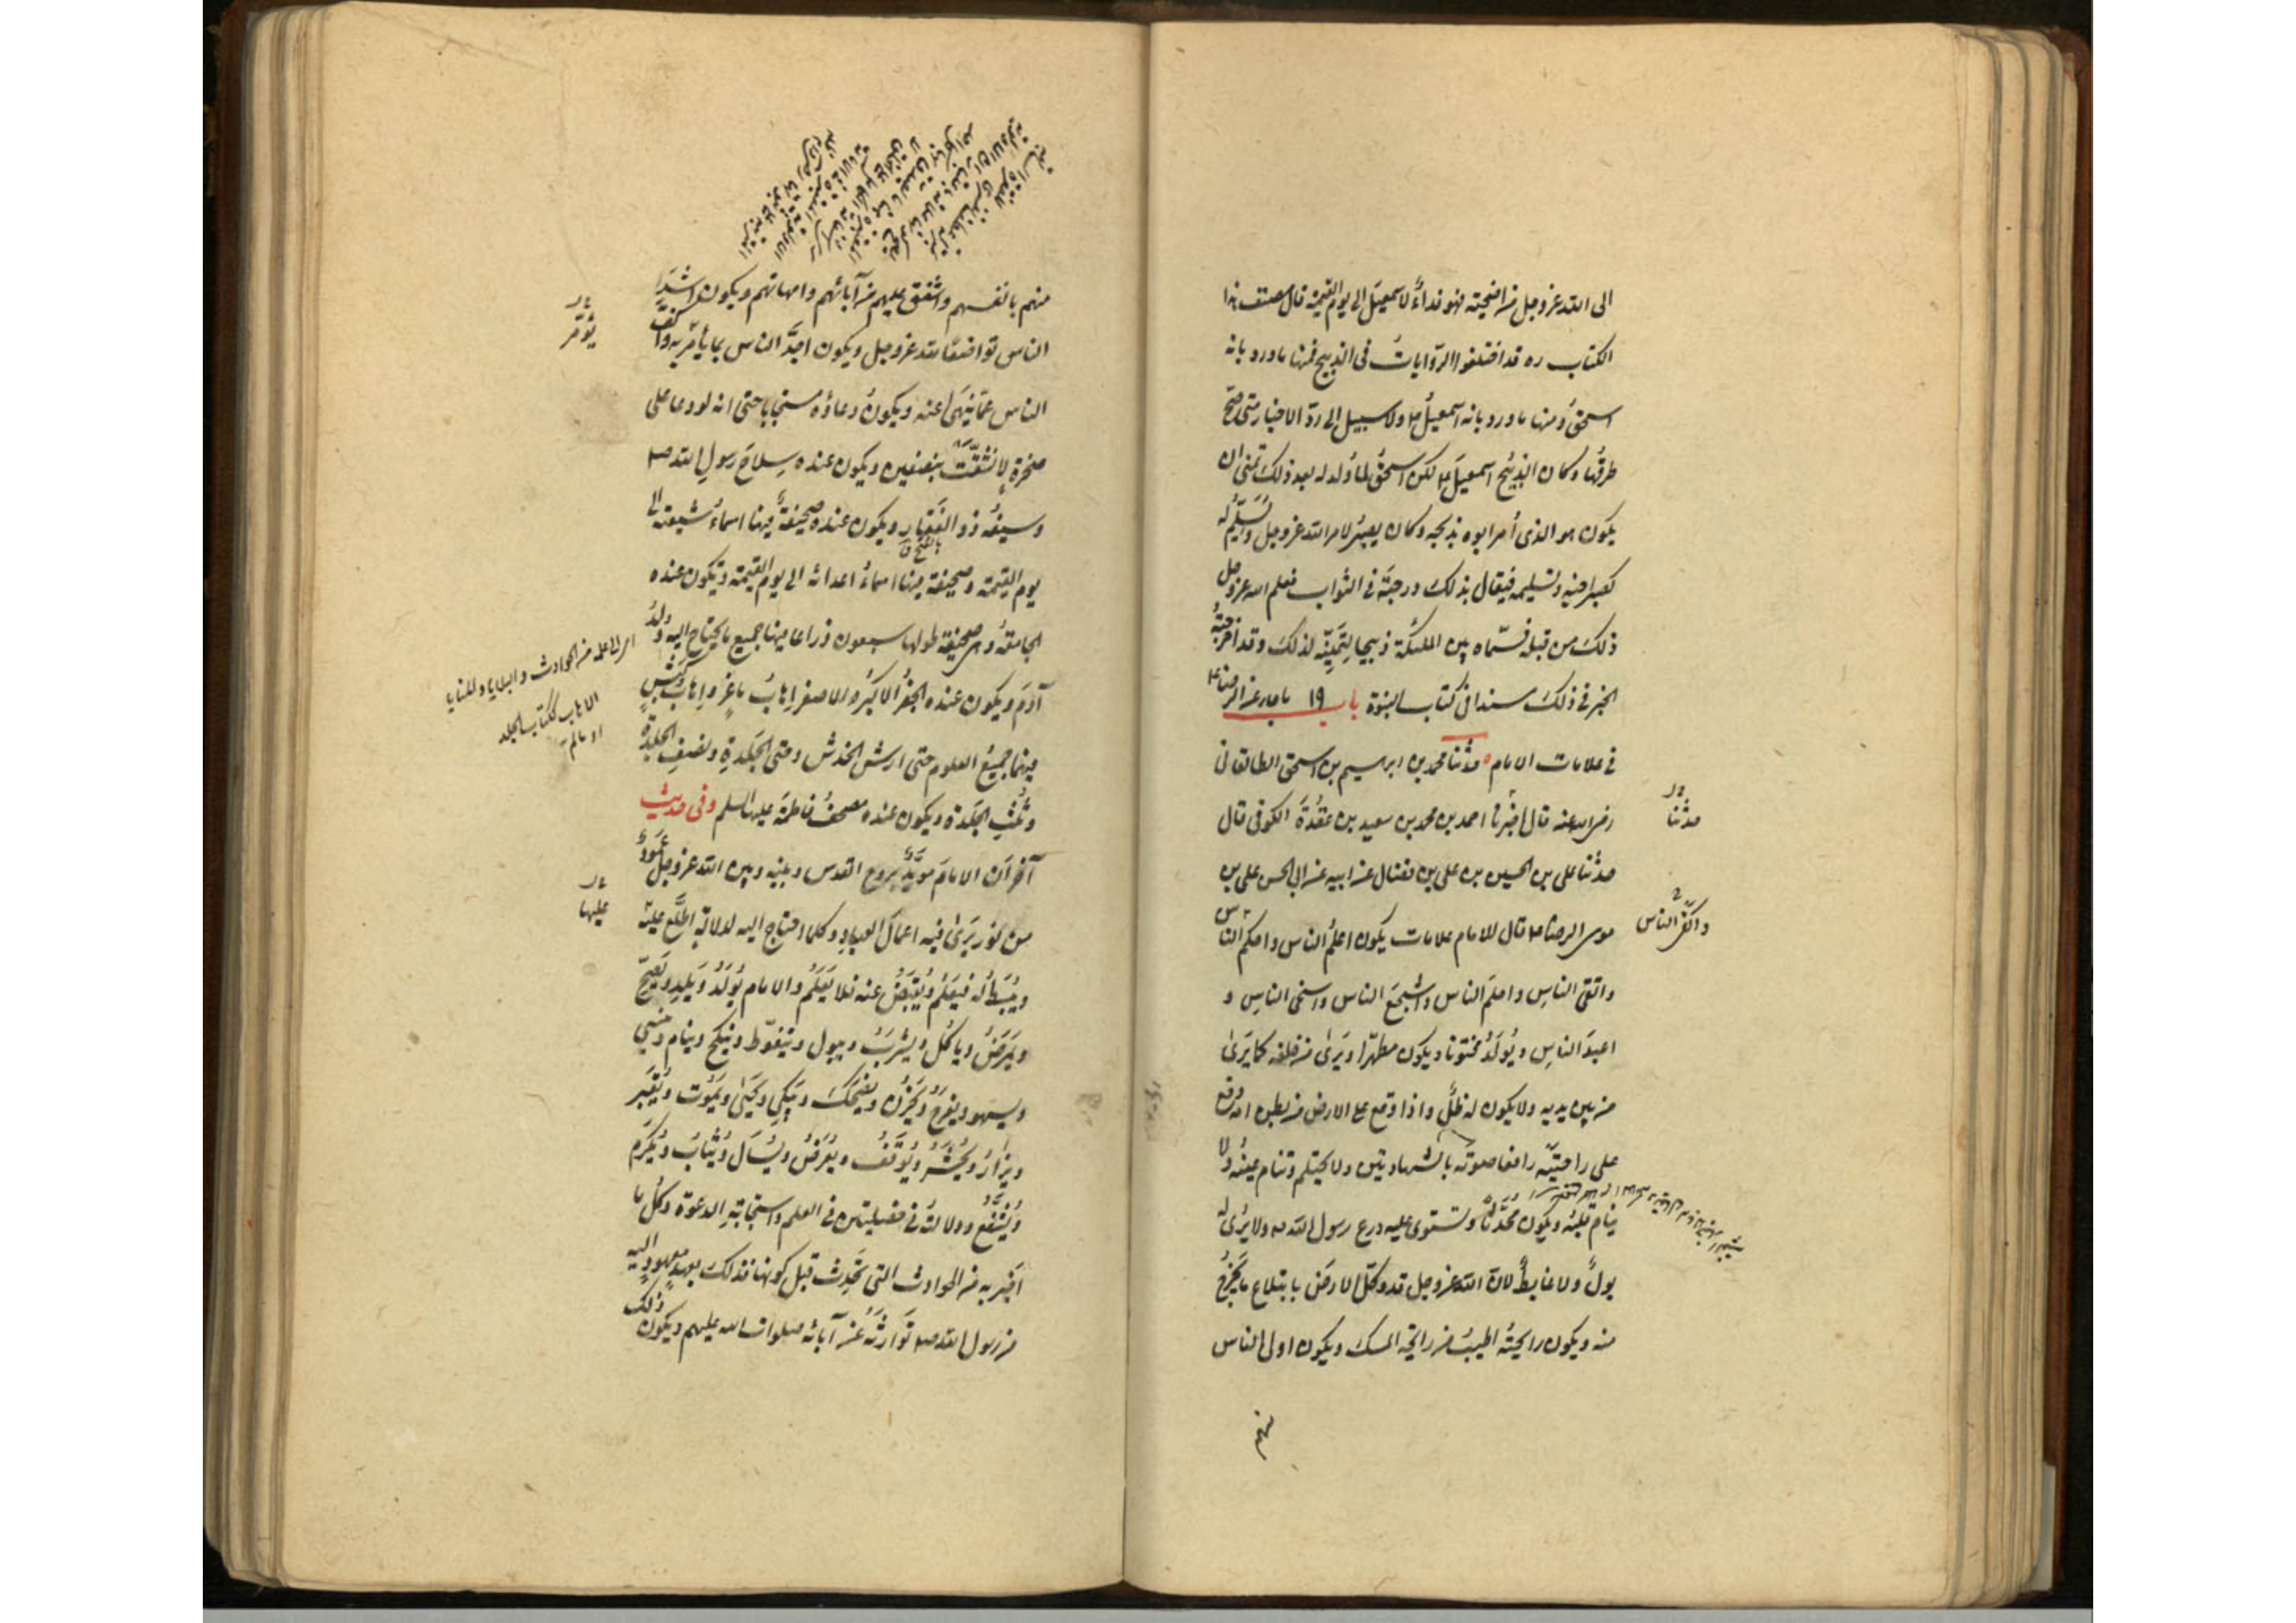 الى الله عز وجل من اضحيته فهو فداء لاسمعيل الى يوم القيمة قال مصنف هذا
الكتاب ره قد اختلفوا الروايات في الذبيح فمنها ما ورد بانه
اسحق ومنها ما ورد بانه اسمعيل ع ولا سبيل الى رد الاخبار متى صح
طرقها وكان الذبيح اسمعيل ع لكن اسحق لما ولد له بعد ذلك تمنى ان
يكون هو الذى أمر ابوه بذبحه وكان يصبر لامر الله عز وجل ويسلم له
كصبر اخيه وتسليمه فينال بذلك درجته في الثواب فعلم الله عز وجل
ذلك من قبله فسماه بين الملئكة ذبيحا لتمنيه لذلك وقد اخرجت
الخبر في ذلك مسندا في كتاب النبوة باب ١٩ ما جاء عن الرضا ع
في علامات الامام حدثنا محمد بن ابرهيم بن اسحق الطالقانى
رضى الله عنه قال اخبرنا احمد بن محمد بن سعيد بن عقدة الكوفى قال
حدثنا
حدثنا على بن الحسين بن على بن فضال عن ابيه عن ابي الحسن على بن
موسى الرضا ع قال للامام علامات يكون اعلم الناس واحكم الناس
واتقى الناس واحلم الناس واشجع الناس واسخى الناس و
اعبد الناس ويولد مختونا ويكون مطهرا ويرى من خلفه كما يرى
من بين يديه ولا يكون له ظل واذا وقع على الارض من بطن امه وقع
على راحتيه رافعا صوته بالشهادتين ولا يحتلم وتنام عينه ولا
ينام قلبه ويكون محدثا وتستوى عليه درع رسول الله ص ولا يرى له
بول ولا غايط لان الله عز وجل قد وكل الارض بابتلاع ما يخرج
منه ويكون رايحته اطيب من رايحة المسك ويكون اولى الناس
منهم
منهم بانفسهم واشفق عليهم من آبائهم وامهاتهم ويكون اشد
الناس تواضعا لله عز وجل ويكون اخذ الناس بما يأمر به واكف
يؤمر
الناس عما ينهى عنه ويكون دعاؤه مستجابا حتى انه لو دعا على
صخرة لانشقت بنصفين ويكون عنده سلاح رسول الله ص
وسيفه ذو الفقار ويكون عنده صحيفة فيها اسماء شيعته الى
بالفتح
يوم القيمة وصحيفة فيها اسماء اعدائه الى يوم القيمة ويكون عنده
الجامعة وهى صحيفة طولها سبعون ذراعا فيها جميع ما يحتاج اليه ولد
آدم ويكون عنده الجفر الاكبر والاصغر اهاب ماعز واهاب كبش
الاهاب ككتاب الجلد
فيهما جميع العلوم حتى ارش الخدش وحتى الجلدة ونصف الجلدة
وثلث الجلدة ويكون عنده مصحف فاطمة عليها السلم وفى حديث
آخر ان الامام مؤيد بروح القدس وبينه وبين الله عز وجل عمود
عليها
من نور يرى فيه اعمال العباد وكلما احتاج اليه لدلالة اطلع عليه
ويبسط له فيعلم ويقبض عنه فلا يعلم والامام يولد ويلد ويصح
ويمرض وياكل ويشرب ويبول ويتغوط وينكح وينام وينسى
ويسهو ويفرح ويحزن ويضحك ويبكي ويحيى ويموت ويقبر
ويزار ويحشر ويوقف ويعرض ويسأل ويثاب ويكرم
ويشفع ودلالته في خصلتين في العلم واستجابة الدعوة وكل ما
اخبر به من الحوادث التى تحدث قبل كونها فذلك بعهد معهود اليه
من رسول الله ص توارثه عن آبائه صلوات الله عليهم ويكون ذلك